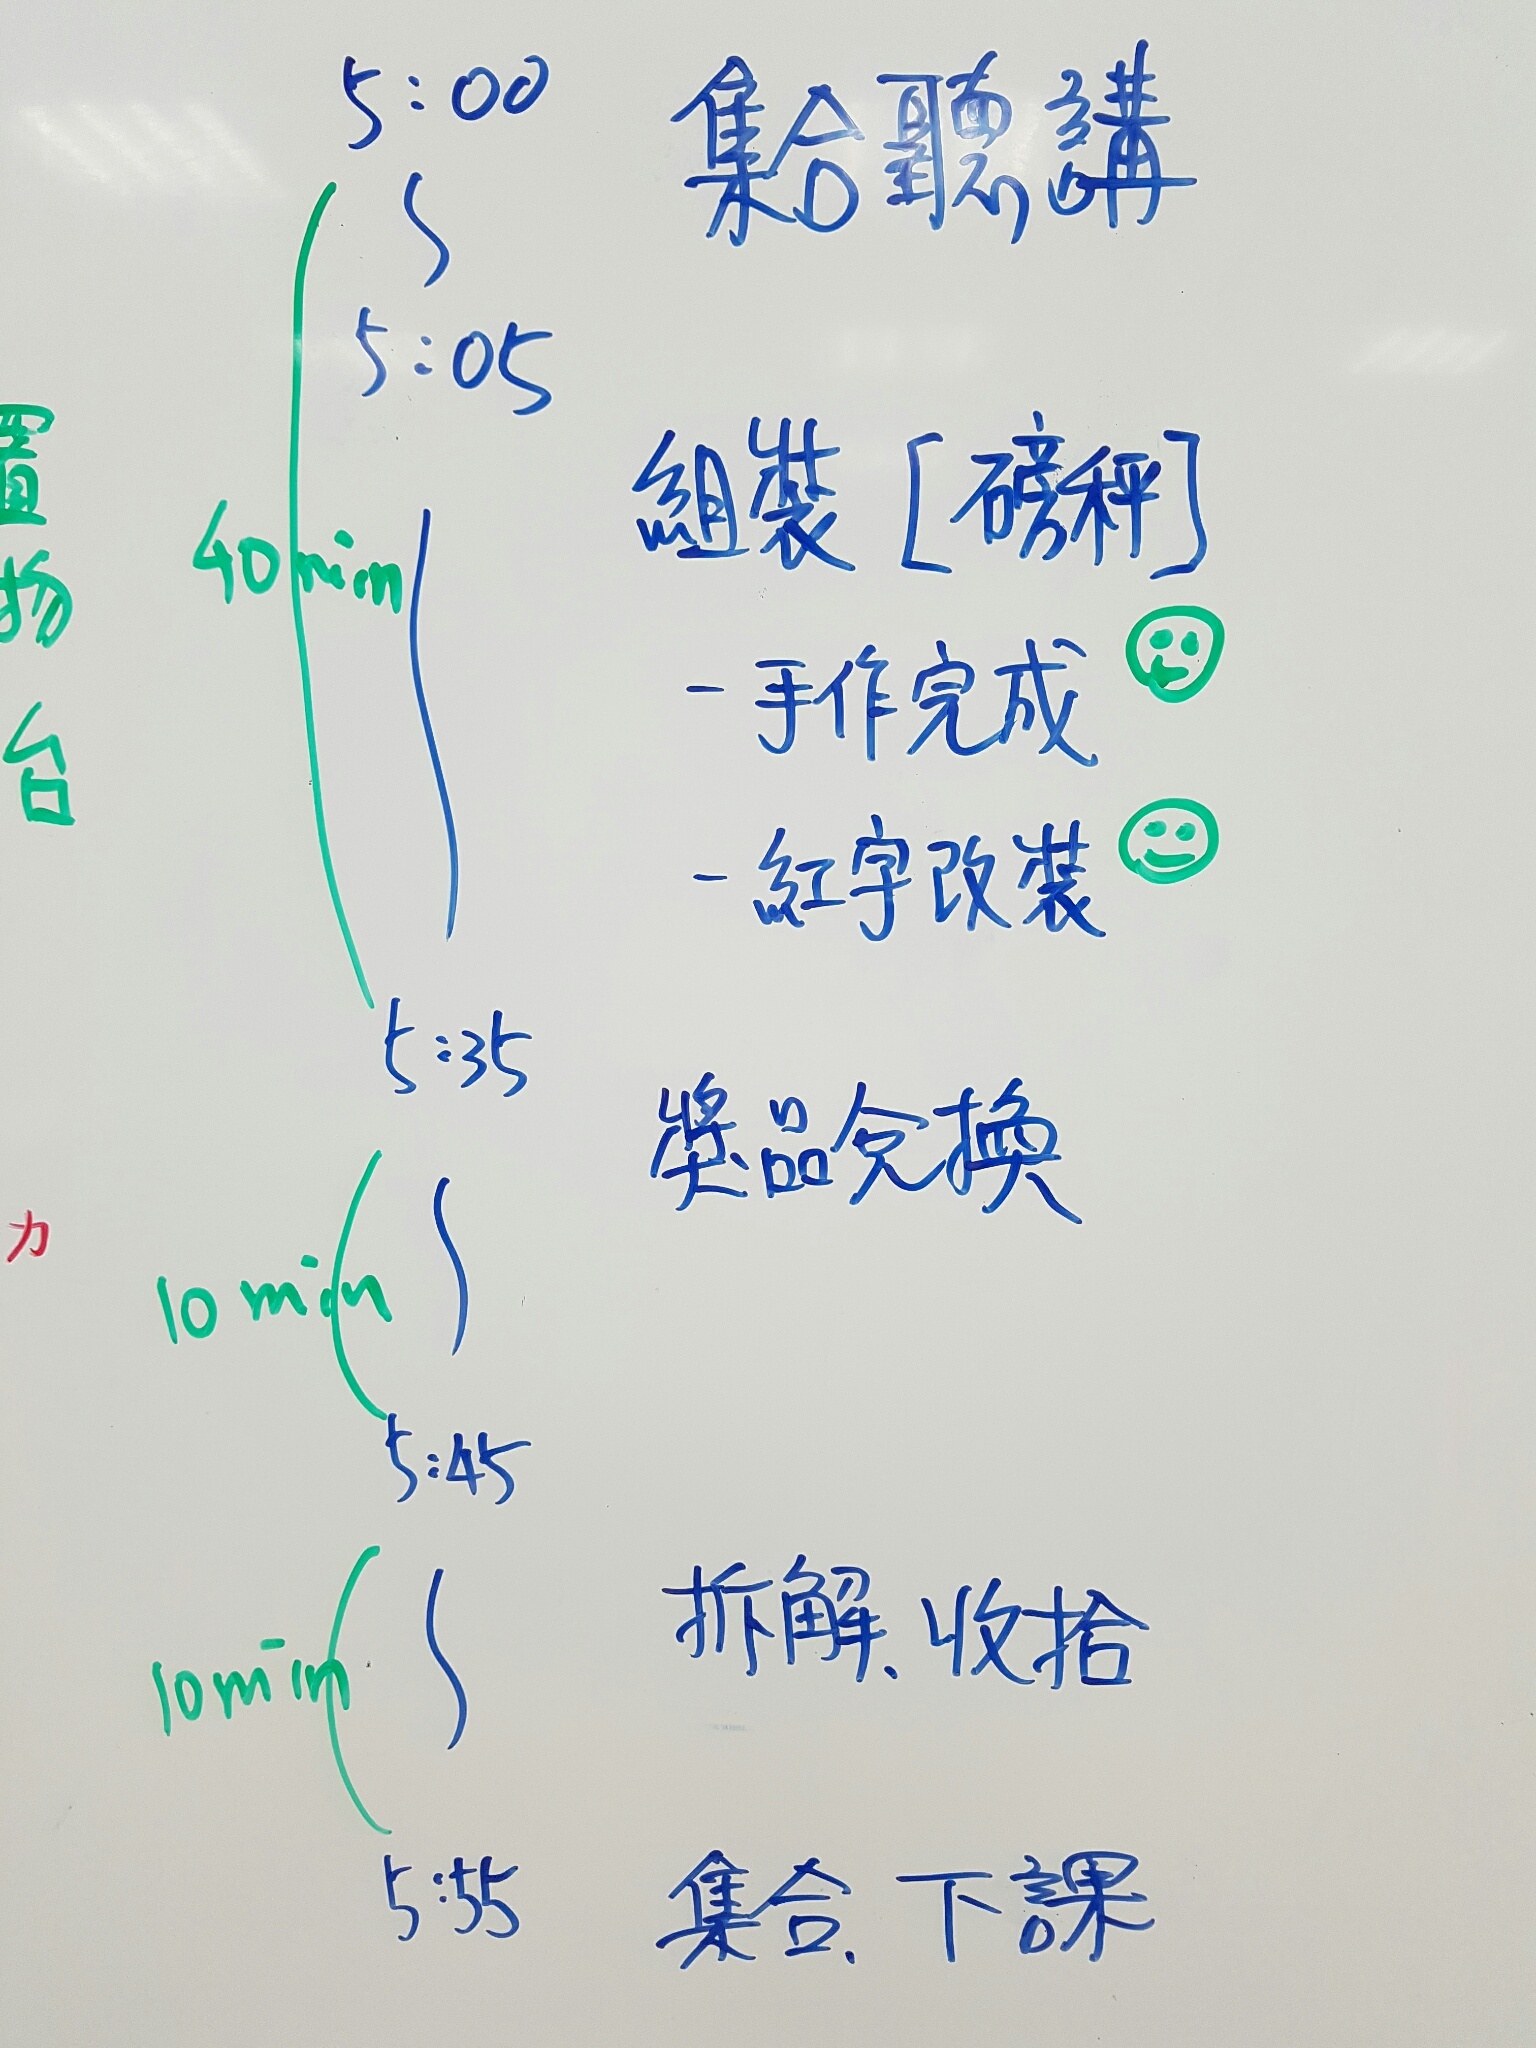 5:00 集合聽講
5:05
40min
組裝[磅秤]
-手作完成
-紅字改裝
5:35
獎品兌換
10min
5:45
拆解、收拾
10min
5:55 集合、下課
置物台
力